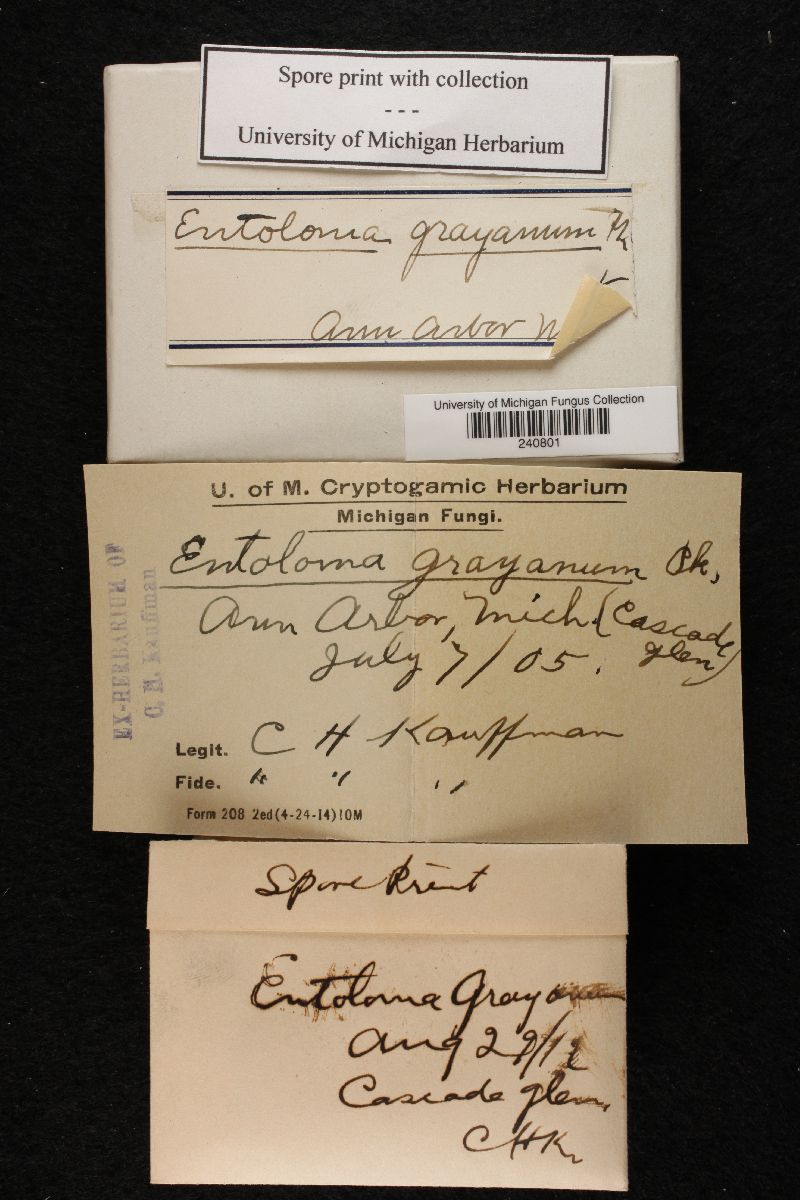 Spore print with collection
- - -
University of Michigan Herbarium
Entoloma grayanum Pk
Ann Arbor
University of Michigan Fungus Collection
240801
U. of M. Cryptogamic Herbarium
Michigan Fungi.
Entoloma grayanum Pk.
Ann Arbor, Mich. (Cascade glen)
July 7/05.
EX-HERBARIUM OF
C. M. Kauffman
Legit. C H Kauffman
Fide. " " "
Form 208 2ed(4-24-14)10M
Spore Print
Entoloma Grayanum
Aug 29/12
Cascade glen,
CHK,